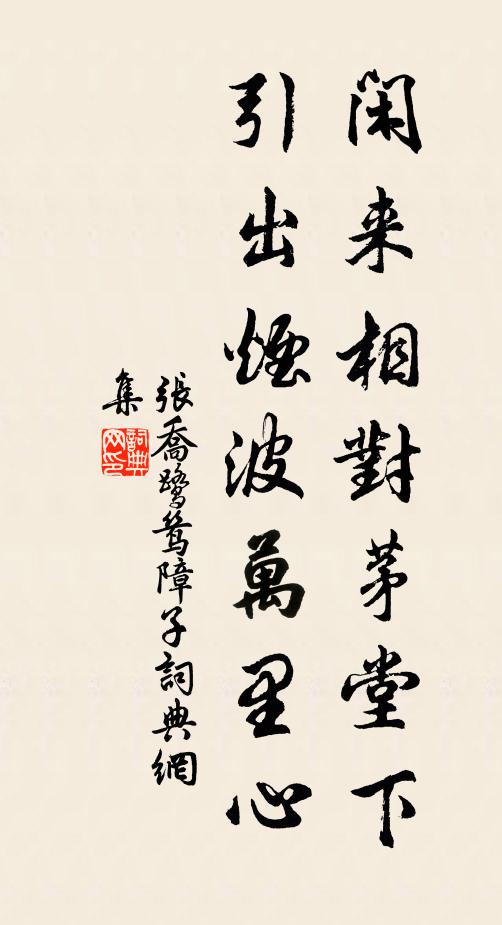 闲来相對茅堂下
引出煙波萬里心
張喬鷺鷥障子詞典網
集
詞典网印